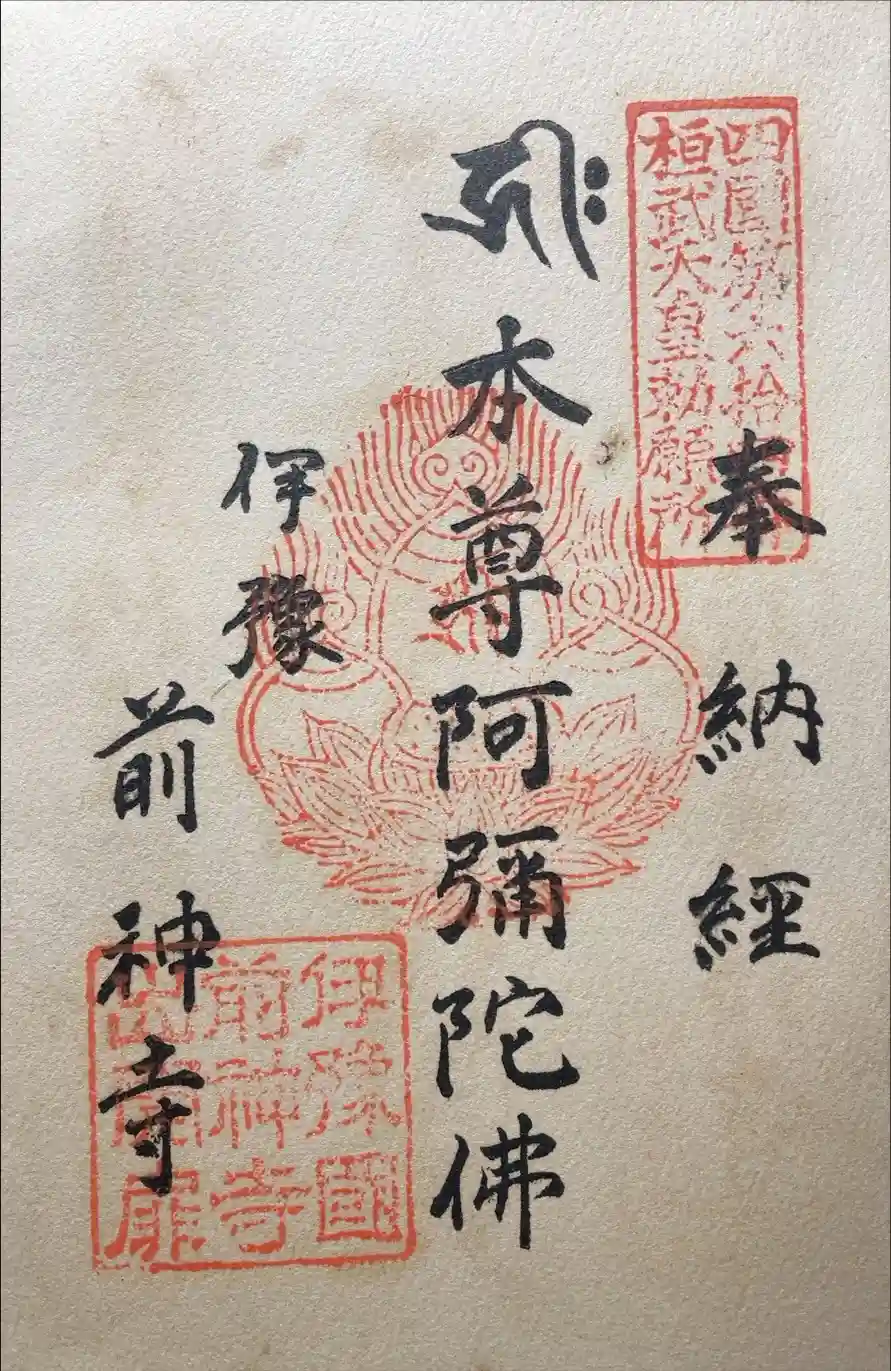 奉納經
四國第六拾四番
桓武天皇勅願所
𑖮𑖿𑖨𑖱𑖾
本尊阿彌陀佛
伊豫
前神寺
伊豫國
前神寺